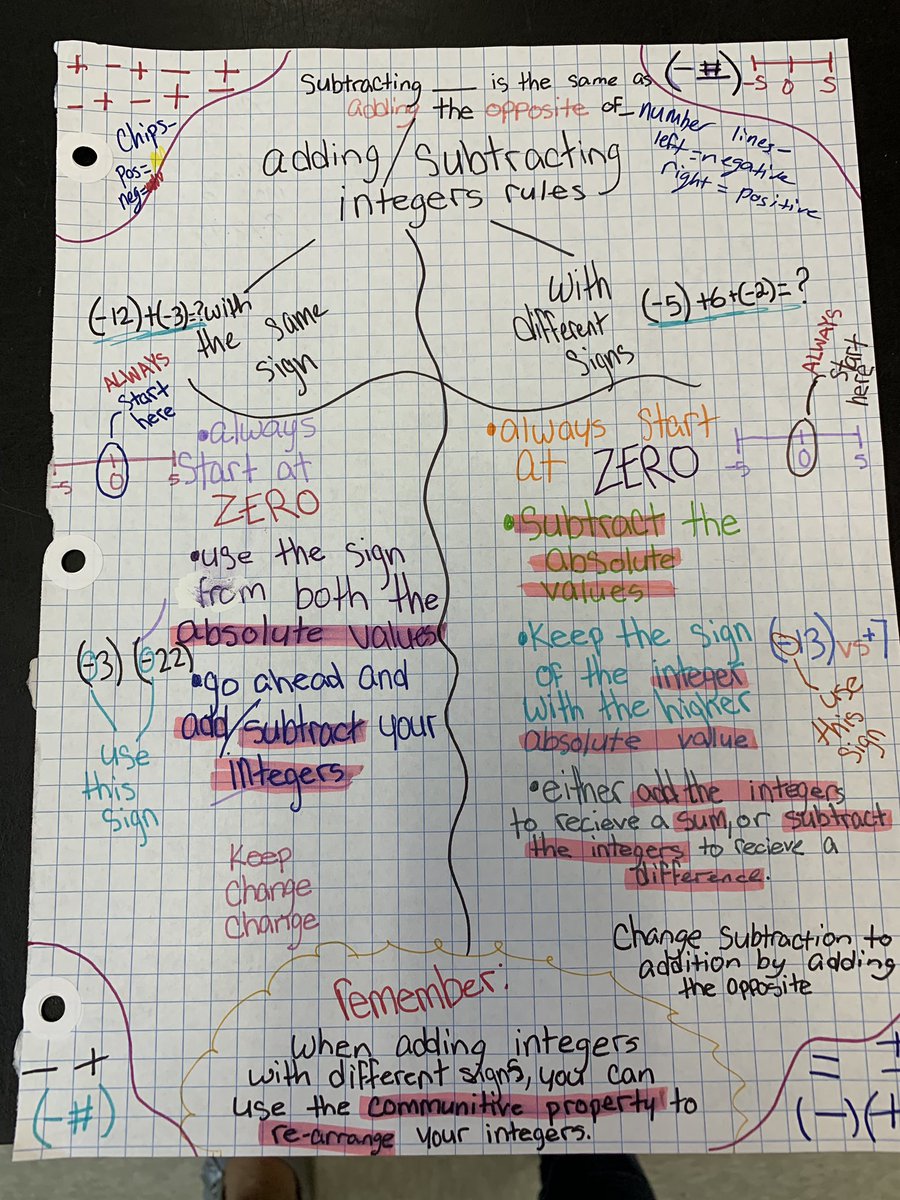 + - + - ±
- + - + ±
Chips-
Pos=
neg=
Subtracting ___ is the same as
adding the opposite of _
(-#)
-5 0 5
number lines-
left = negative
right = positive
adding/subtracting
integers rules
(-12)+(-3)=?
with
the same
sign
ALWAYS
start
here
-5 0 5
• always
start at
ZERO
• use the sign
from both the
absolute values
(-3) (-22)
use
this
sign
• go ahead and
add/subtract your
integers
Keep
Change
Change
with
different
signs
(-5)+6+(-2)=?
ALWAYS
start
here
-5 0 5
• always start
at ZERO
• Subtract the
absolute
values
• Keep the sign
of the integer
with the higher
absolute value
(-13) vs +7
use
this
sign
• either add the integers
to recieve a sum, or subtract
the integers to recieve a
difference.
Change subtraction to
addition by adding
the opposite
remember:
When adding integers
with different signs, you can
use the communitive property to
re-arrange your integers.
- +
(-#)
= +
(-)(+